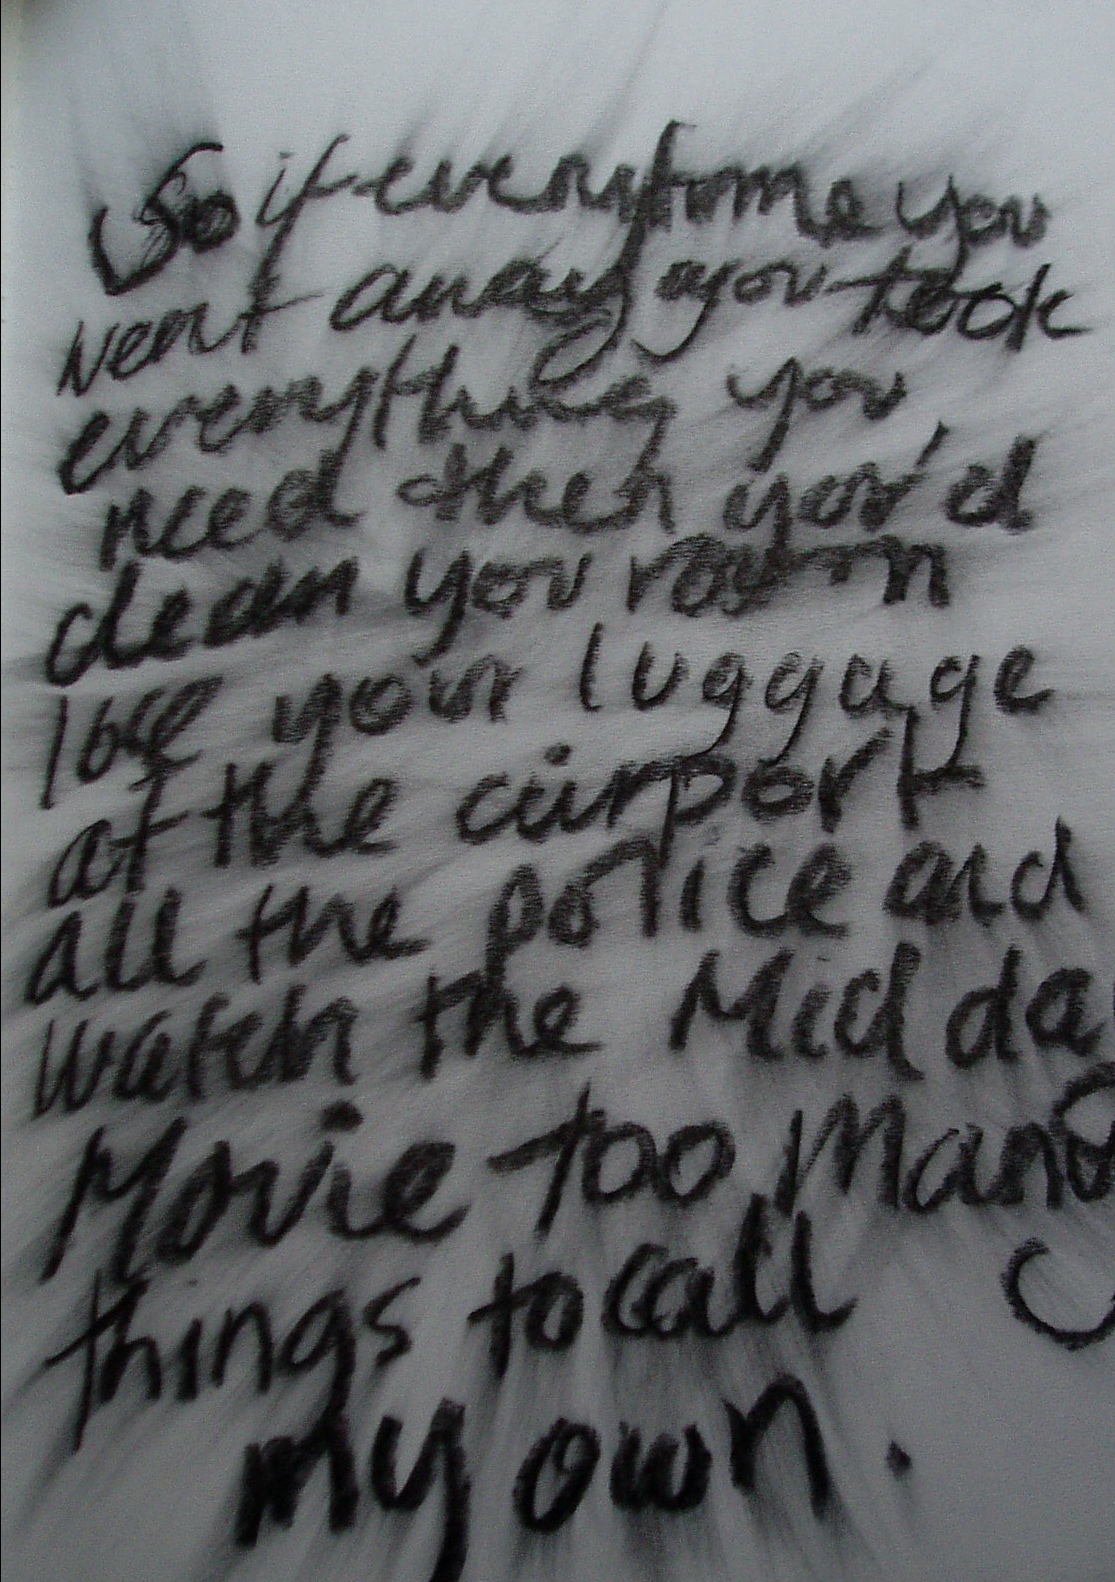 So if everytime you
went away you took
everything you
need then you'd
clean you room
lose your luggage
at the airport
all the police and
watch the Mid da
Movie too many
things to call
my own.